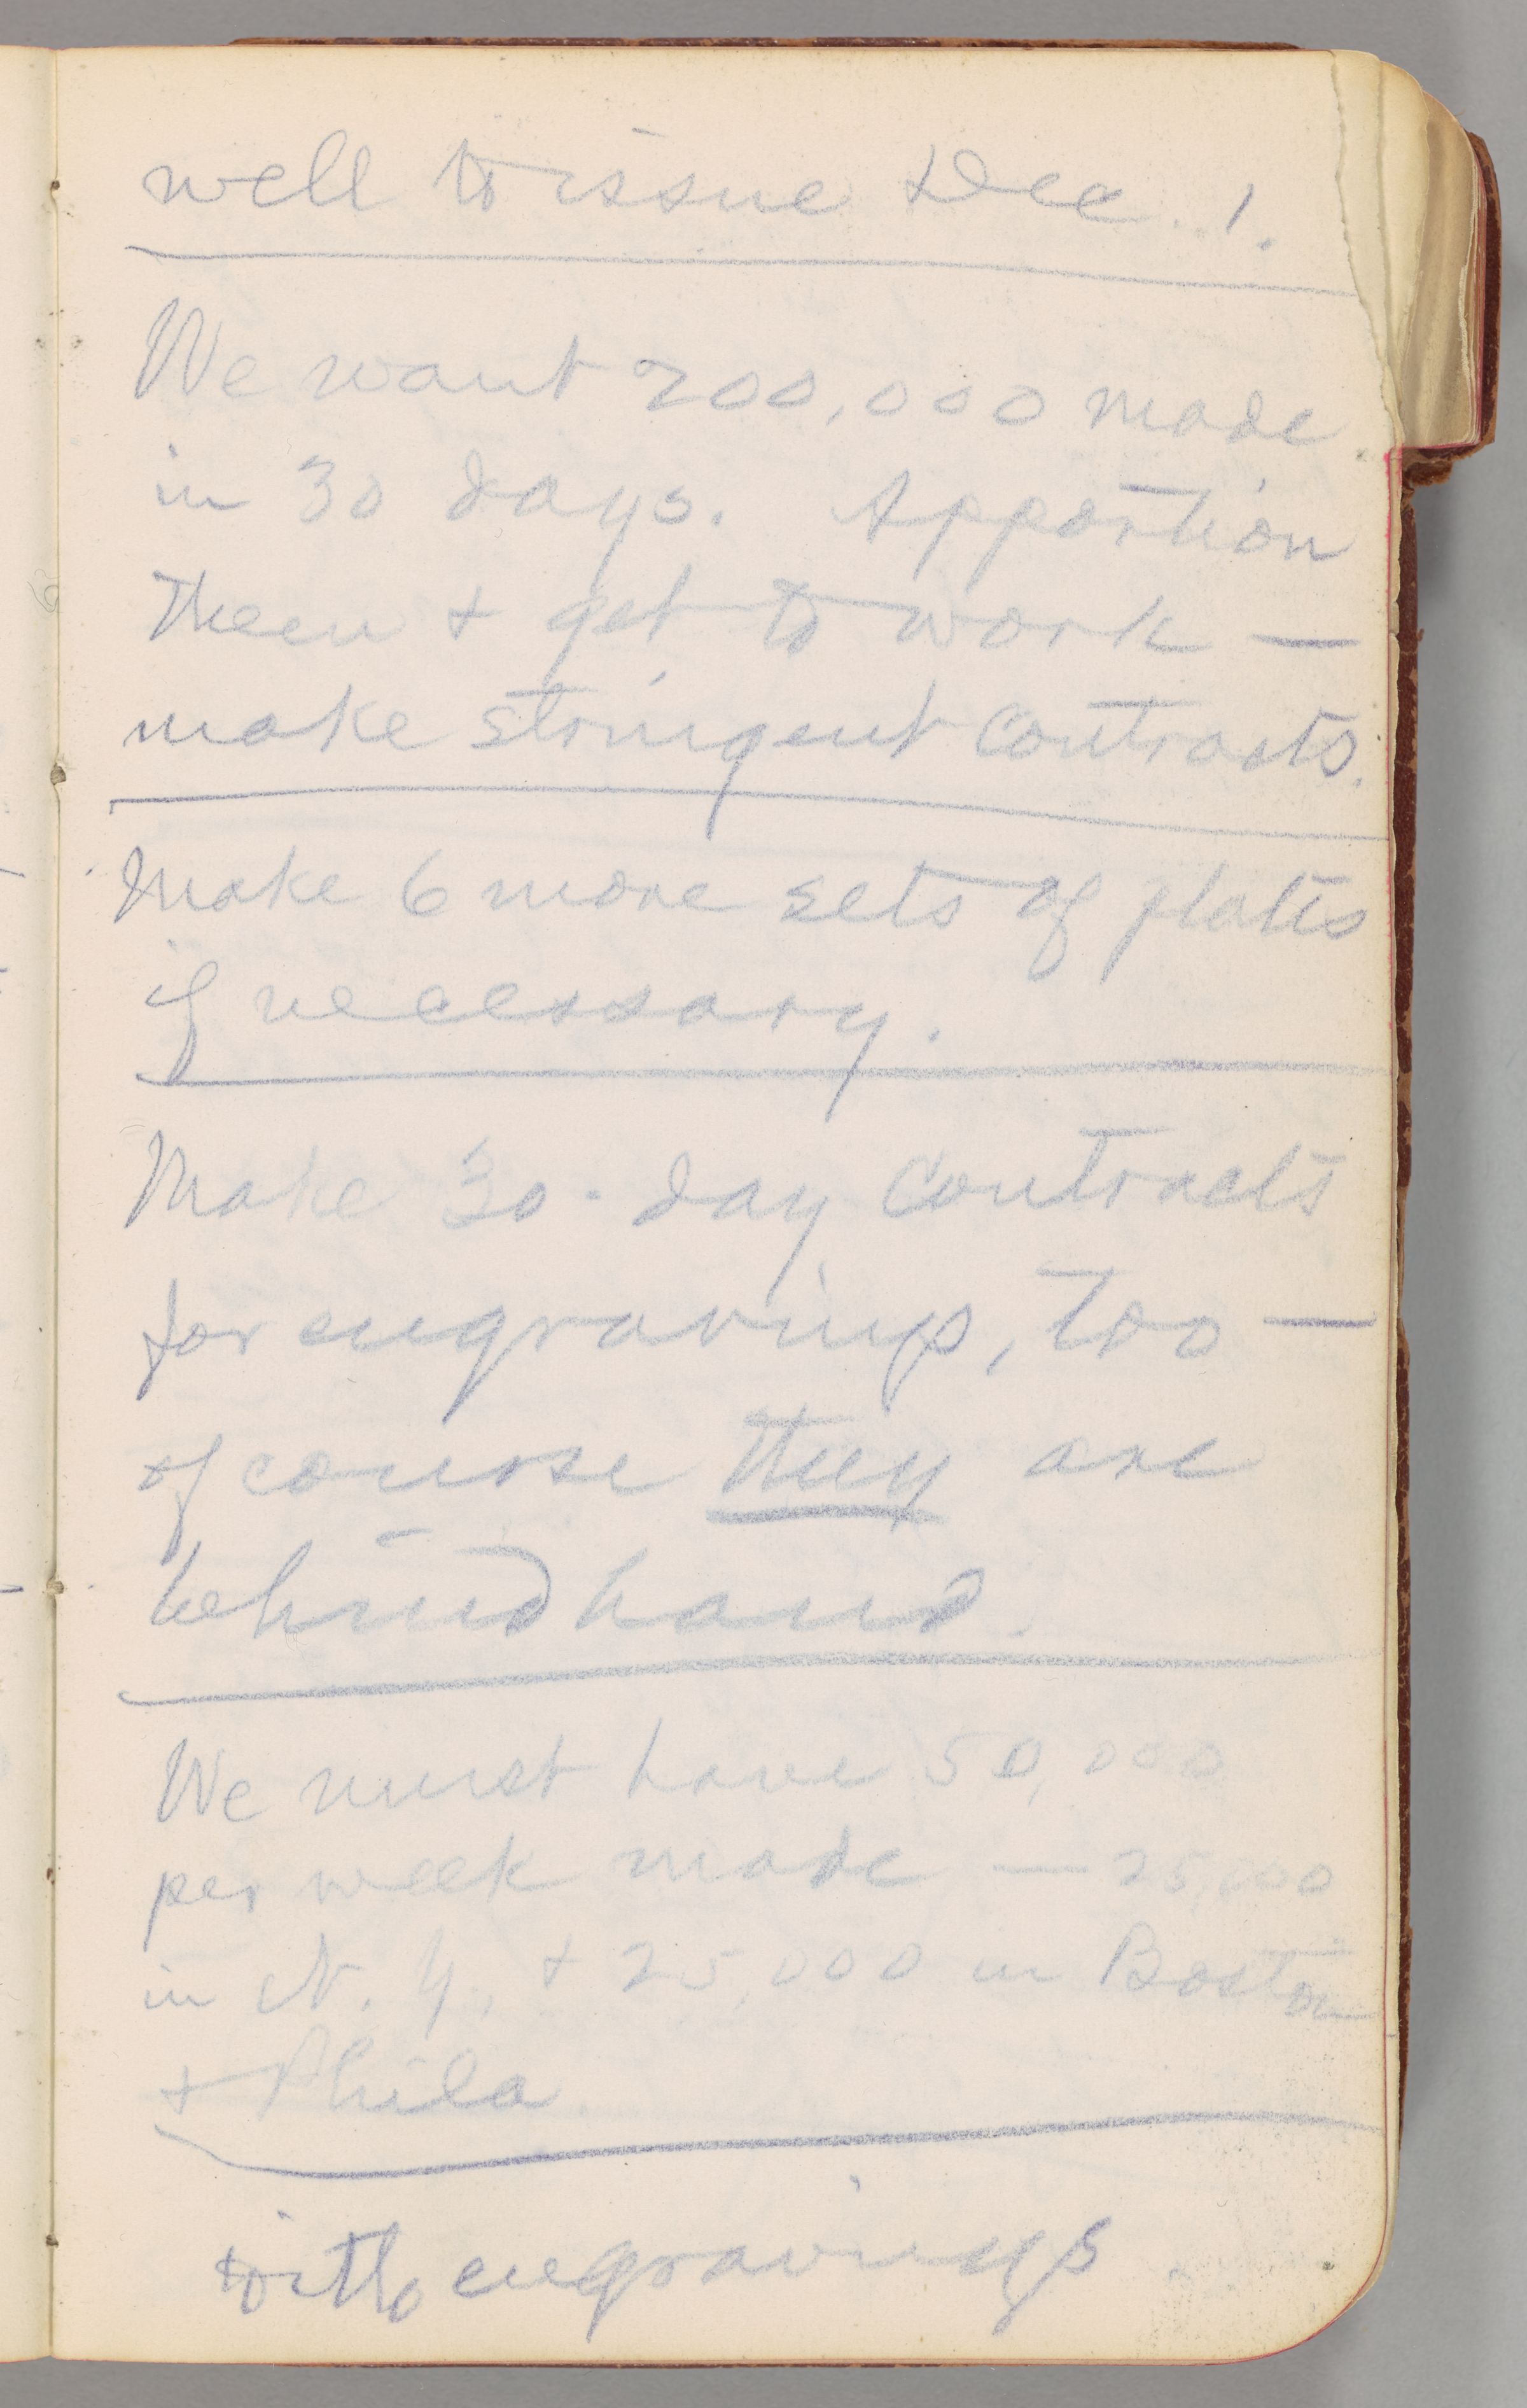 well to issue Dec. 1.
We want 200,000 made
in 30 days. Apportion
them + get to work —
make stringent contracts.
Make 6 more sets of plates
if necessary.
Make 30-day contracts
for engravings, too —
of course they are
behindhand.
We must have 50,000
per week made — 25,000
in N. Y. + 25,000 in Boston
+ Phila
with engravings